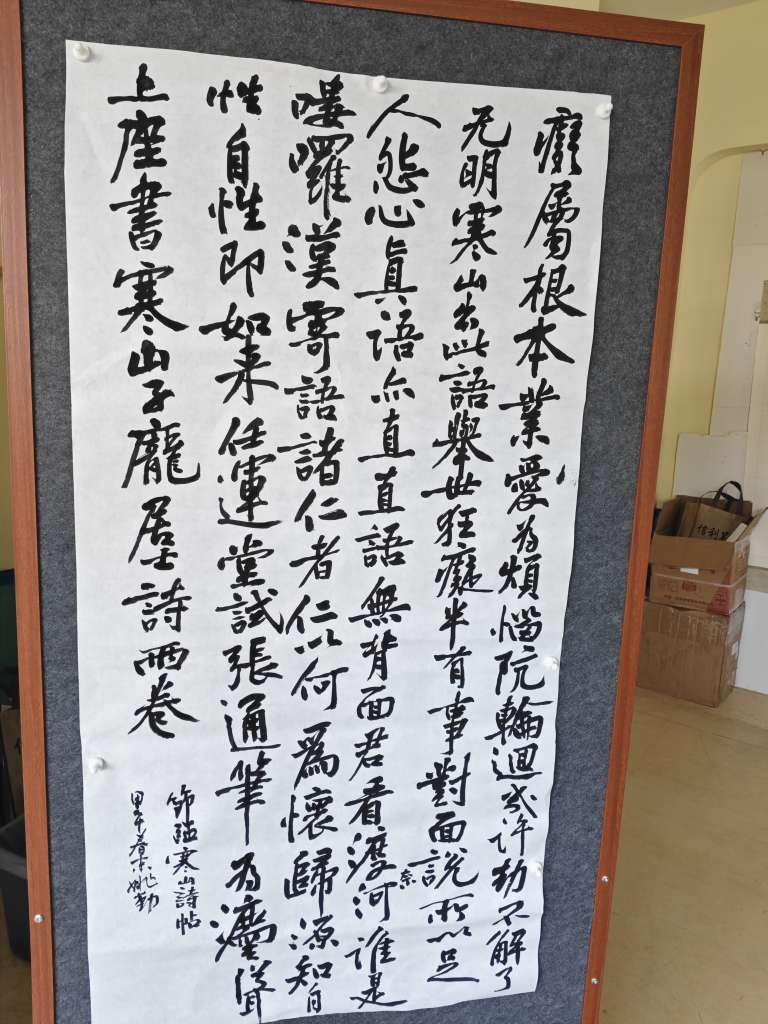 癡屬根本業愛為煩惱阬輪迴幾許劫不解了
无明寒山出此語舉世狂癡半有事對面說所以足
人怨心真語亦直直語無背面君看渡奈河誰是
嘍囉漢寄語諸仁者仁以何為懷歸源知自
性自性即如來任運堂試張通筆為灋聳
上座書寒山子龐居士詩兩卷
節臨寒山詩帖
甲午春末姚勤